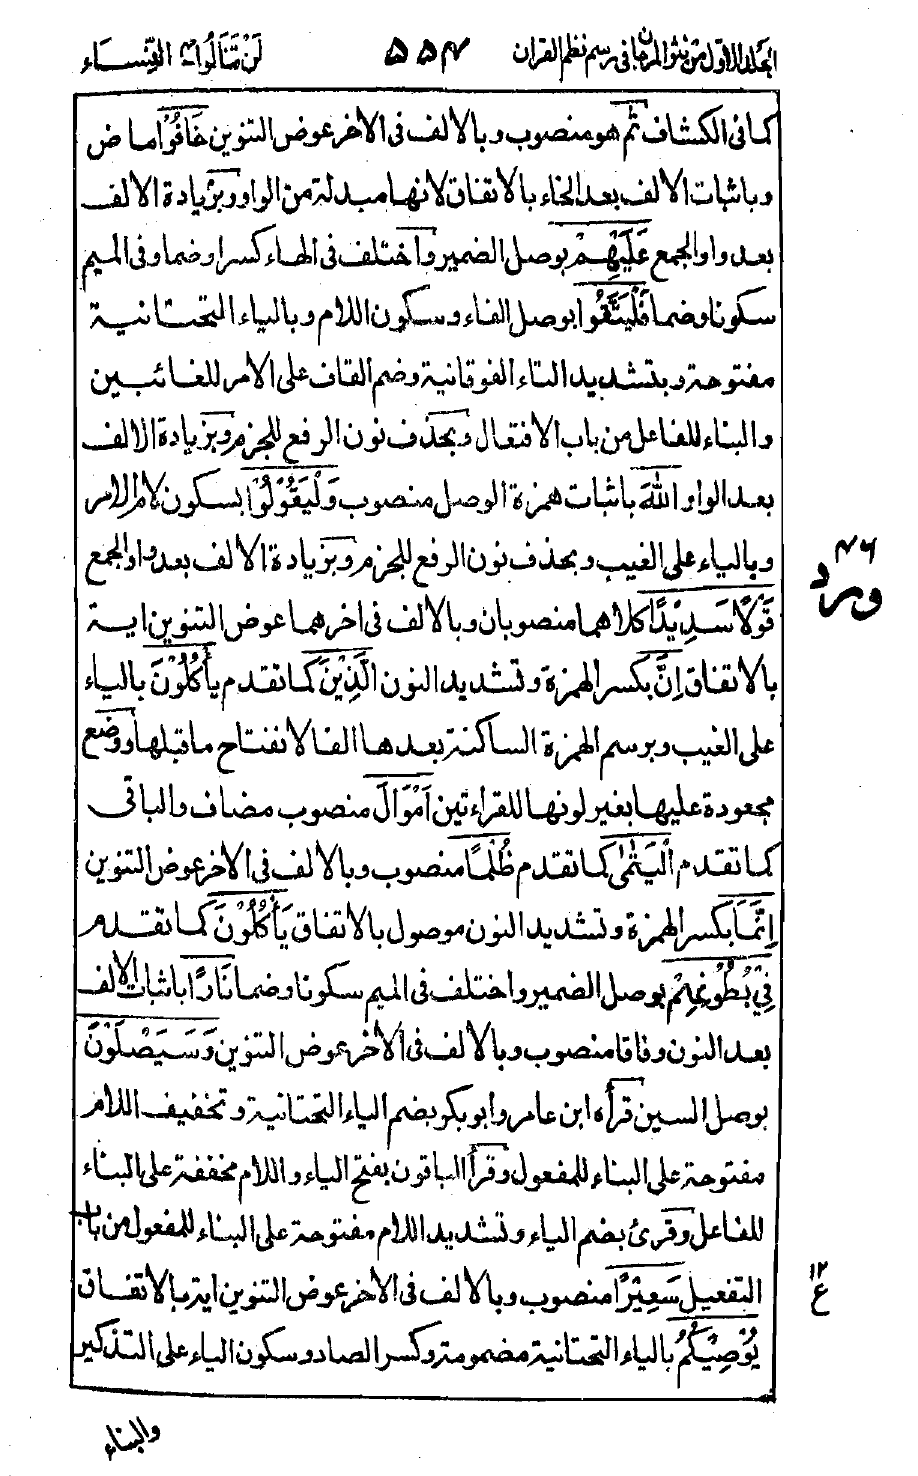 المجلد الاول من نثر المرجان فى رسم نظم القران ۵۵۴ لَنْ تَنَالُوا۴ النِّسَاء
كما فى الكشاف ثم هو منصوب وبالالف فى الاخر عوض التنوين خَافُوْا ماض
وباثبات الالف بعد الخاء بالاتفاق لانها مبدلة من الواو وبزيادة الالف
بعد واو الجمع عَلَيْهِمْ بوصل الضمير واختلف فى الهاء كسرا وضما وفى الميم
سكونا وضما فَلْيَتَّقُوا بوصل الفاء وسكون اللام وبالياء التحتانية
مفتوحة وبتشديد التاء الفوقانية وضم القاف على الامر للغائبين
والبناء للفاعل من باب الافتعال وبحذف نون الرفع للجزم وبزيادة الالف
بعد الواو اللهَ باثبات همزة الوصل منصوب وَلْيَقُوْلُوْا بسكون لام الامر
وبالياء على الغيب وبحذف نون الرفع للجزم وبزيادة الالف بعد واو الجمع
قَوْلًا سَدِيْدًا كلاهما منصوبان وبالالف فى اخرهما عوض التنوين اية
بالاتفاق اِنَّ بكسر الهمزة وتشديد النون الَّذِيْنَ كما تقدم يأْكُلُوْنَ بالياء
على الغيب وبرسم الهمزة الساكنة بعدها الفا لانفتاح ما قبلها ووضع
مجعودة عليها بغير لونها للقراءتين اَمْوَالَ منصوب مضاف والباقى
كما تقدم الْيَتٰمٰى كما تقدم ظُلْمًا منصوب وبالالف فى الاخر عوض التنوين
اِنَّمَا بكسر الهمزة وتشديد النون موصول بالاتفاق يَأْكُلُوْنَ كما تقدم
فِيْ بُطُوْنِهِمْ بوصل الضمير واختلف فى الميم سكونا وضما نَارًا باثبات الالف
بعد النون وفاقا منصوب وبالالف فى الاخر عوض التنوين وَسَيَصْلَوْنَ
بوصل السين قرأه ابن عامر وابو بكر بضم الياء التحتانية وتخفيف اللام
مفتوحة على البناء للمفعول وقرأ الباقون بفتح الياء واللام مخففة على البناء
للفاعل وقرئ بضم الياء وتشديد اللام مفتوحة على البناء للمفعول من باب
التفعيل سَعِيْرًا منصوب وبالالف فى الاخر عوض التنوين اية بالاتفاق
يُوْصِيْكُمُ بالياء التحتانية مضمومة وكسر الصاد وسكون الياء على التذكير
والبناء
ورد
۱۲
ع